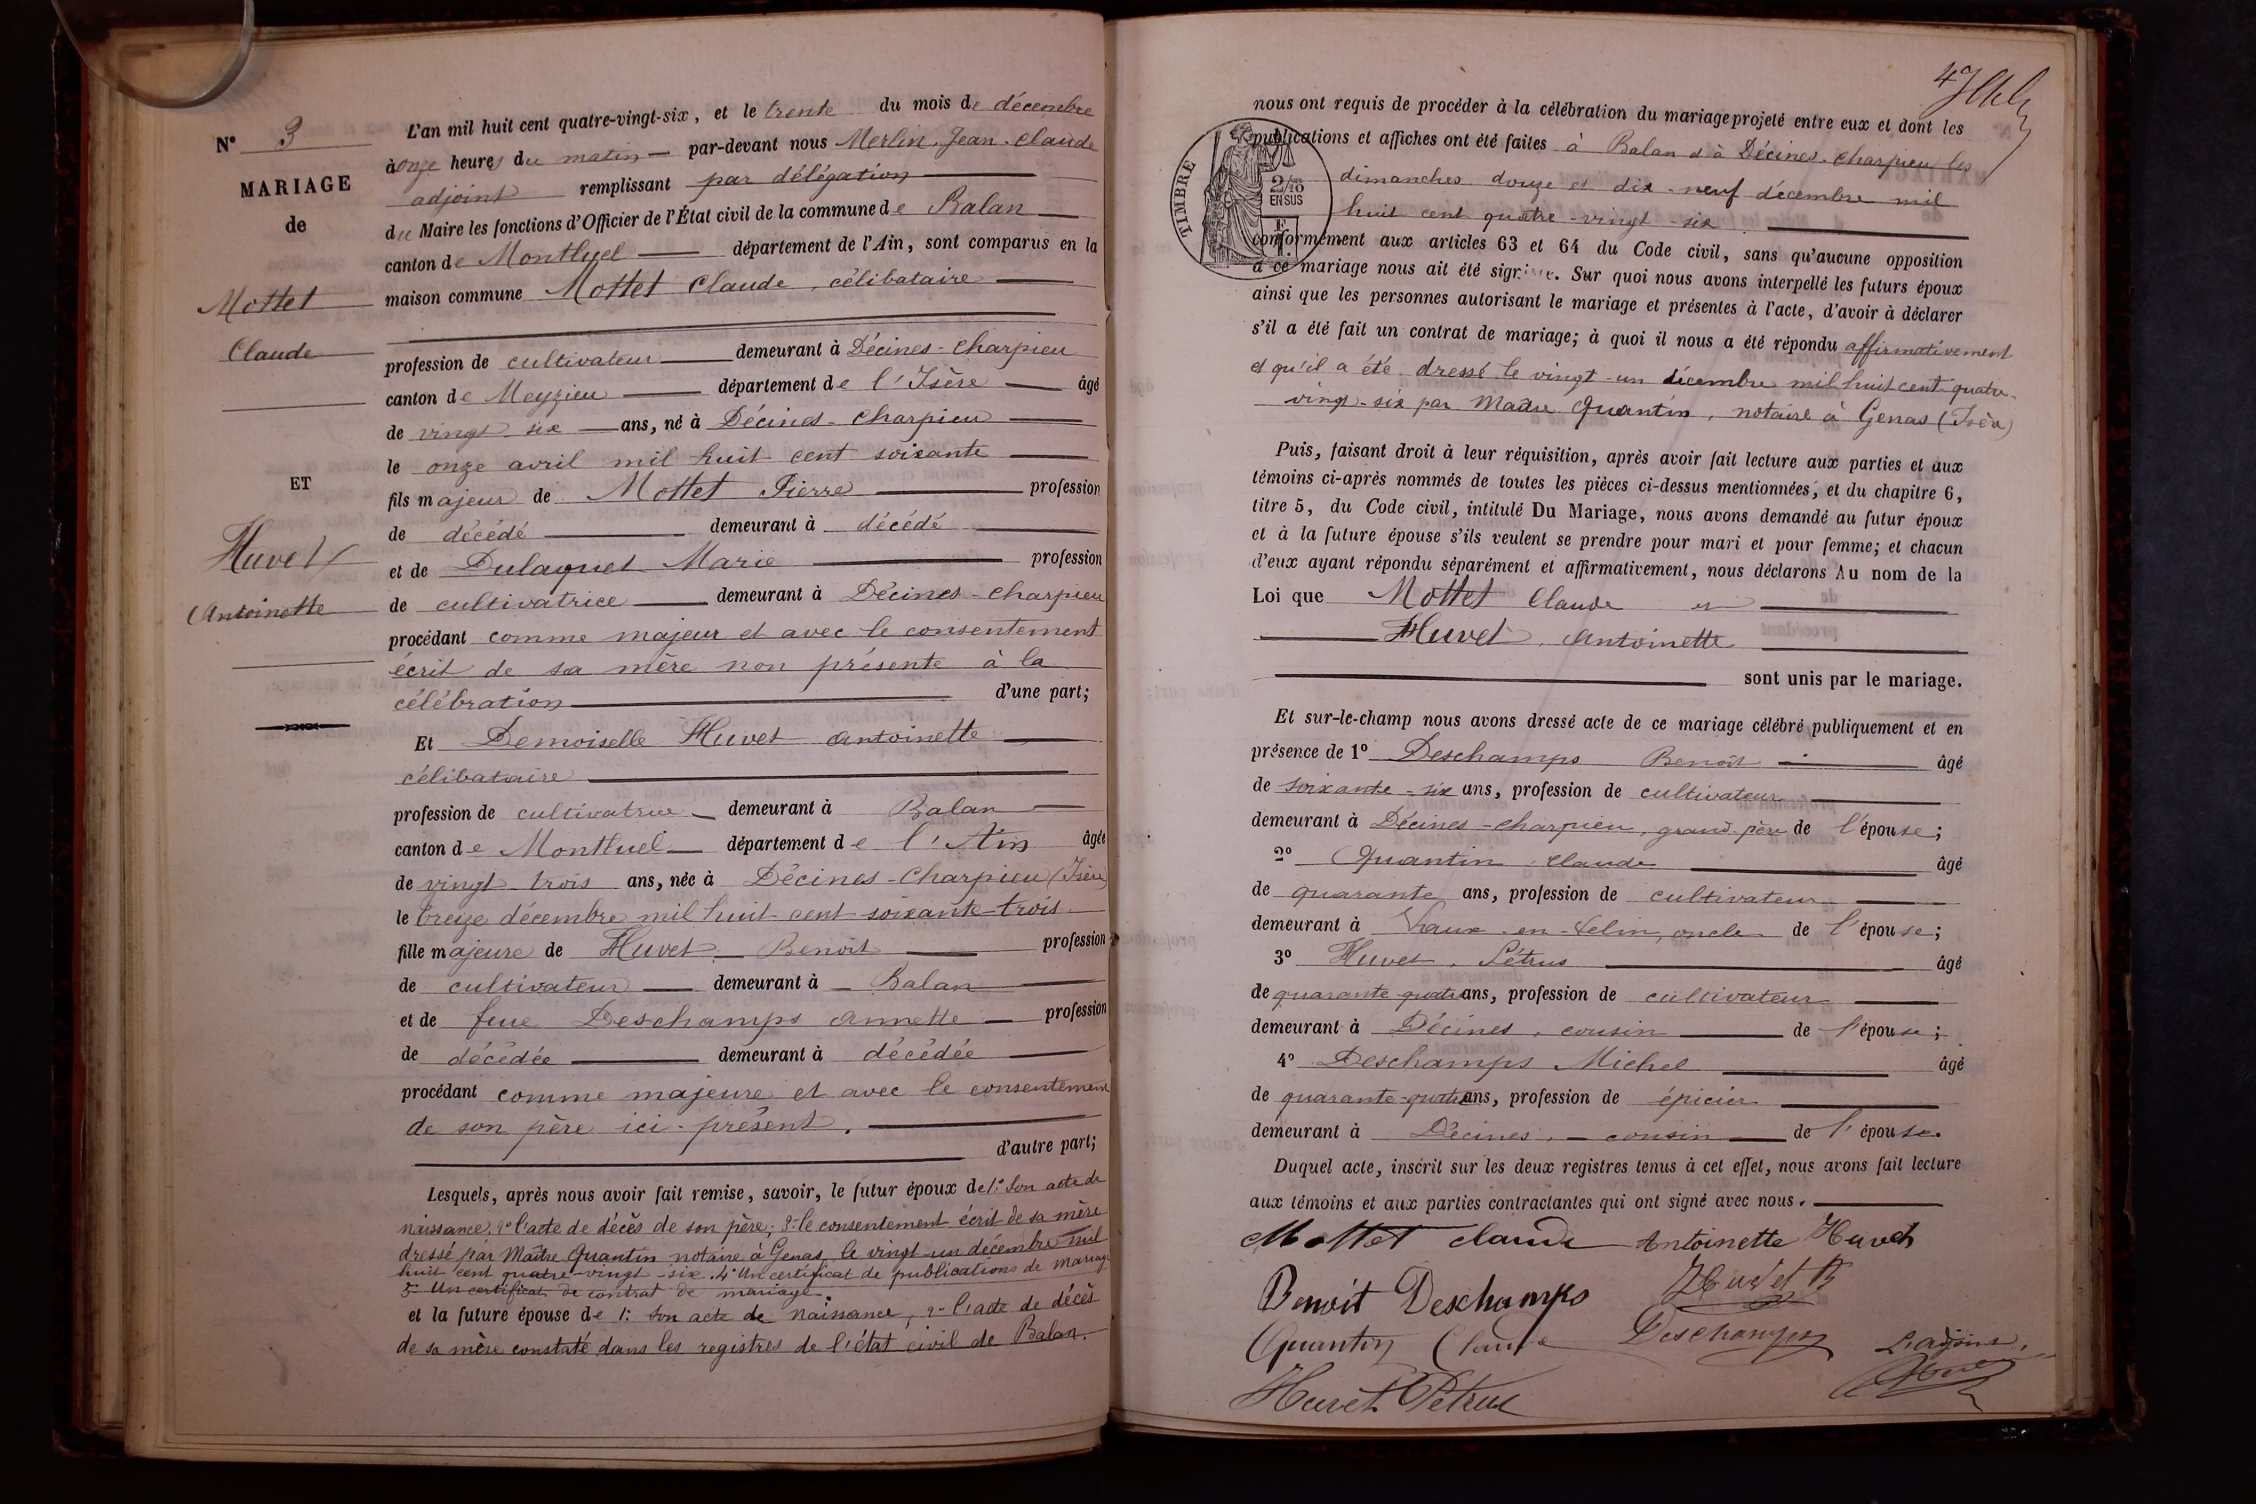 N° 3
MARIAGE
de
Mottet
Claude
ET
Huvet
Antoinette
L'an mil huit cent quatre-vingt-six, et le trente du mois de décembre
à onze heures du matin par-devant nous Merlin Jean-Claude
adjoint remplissant par délégation
du Maire les fonctions d'Officier de l'État civil de la commune de Balan
canton de Montluel département de l'Ain, sont comparus en la
maison commune Mottet Claude, célibataire
profession de cultivateur demeurant à Décines-Charpieu
canton de Meyzieu département de l'Isère âgé
de vingt six ans, né à Décines-Charpieu
le onze avril mil huit cent soixante
fils majeur de Mottet Pierre profession
de décédé demeurant à décédé
et de Dulaquet Marie profession
de cultivatrice demeurant à Décines-Charpieu
procédant comme majeur et avec le consentement
écrit de sa mère non présente à la
célébration d'une part;
Et Demoiselle Huvet Antoinette
célibataire
profession de cultivatrice demeurant à Balan
canton de Montluel département de l'Ain âgée
de vingt trois ans, née à Décines-Charpieu (Isère)
le treize décembre mil huit cent soixante-trois
fille majeure de Huvet Benoit profession
de cultivateur demeurant à Balan
et de feue Deschamps Annette profession
de décédée demeurant à décédée
procédant comme majeure et avec le consentement
de son père ici-présent.
d'autre part;
Lesquels, après nous avoir fait remise, savoir, le futur époux de 1° Son acte de
naissance, 2° l'acte de décès de son père; 3° le consentement écrit de sa mère
dressé par Maître Quantin notaire à Genas le vingt-un décembre mil
huit cent quatre-vingt-six. 4° Un certificat de publications de mariage
5° Un certificat de contrat de mariage.
et la future épouse de 1° Son acte de naissance, 2° l'acte de décès
de sa mère constaté dans les registres de l'état civil de Balan.
TIMBRE
2/10
EN SUS
nous ont requis de procéder à la célébration du mariage projeté entre eux et dont les
publications et affiches ont été faites à Balan et à Décines-Charpieu les
dimanches douze et dix-neuf décembre mil
huit cent quatre-vingt-six
conformément aux articles 63 et 64 du Code civil, sans qu'aucune opposition
à ce mariage nous ait été signifiée. Sur quoi nous avons interpellé les futurs époux
ainsi que les personnes autorisant le mariage et présentes à l'acte, d'avoir à déclarer
s'il a été fait un contrat de mariage; à quoi il nous a été répondu affirmativement
et qu'il a été dressé le vingt-un décembre mil huit cent quatre-
vingt-six par Maître Quantin, notaire à Genas (Isère)
Puis, faisant droit à leur réquisition, après avoir fait lecture aux parties et aux
témoins ci-après nommés de toutes les pièces ci-dessus mentionnées, et du chapitre 6,
titre 5, du Code civil, intitulé Du Mariage, nous avons demandé au futur époux
et à la future épouse s'ils veulent se prendre pour mari et pour femme; et chacun
d'eux ayant répondu séparément et affirmativement, nous déclarons Au nom de la
Loi que Mottet Claude et
Huvet Antoinette
sont unis par le mariage.
Et sur-le-champ nous avons dressé acte de ce mariage célébré publiquement et en
présence de 1° Deschamps Benoit âgé
de soixante-six ans, profession de cultivateur
demeurant à Décines-Charpieu, grand-père de l'épouse;
2° Quantin Claude âgé
de quarante ans, profession de cultivateur
demeurant à Vaux-en-Velin, oncle de l'épouse;
3° Huvet, Pétrus âgé
de quarante quatre ans, profession de cultivateur
demeurant à Décines, cousin de l'épouse;
4° Deschamps Michel âgé
de quarante-quatre ans, profession de épicier
demeurant à Décines, cousin de l'épouse.
Duquel acte, inscrit sur les deux registres tenus à cet effet, nous avons fait lecture
aux témoins et aux parties contractantes qui ont signé avec nous.
Mottet Claude Antoinette Huvet
Benoit Deschamps Huvet B
Quantin Claude Deschamps L'adjoint,
Huvet Pétrus